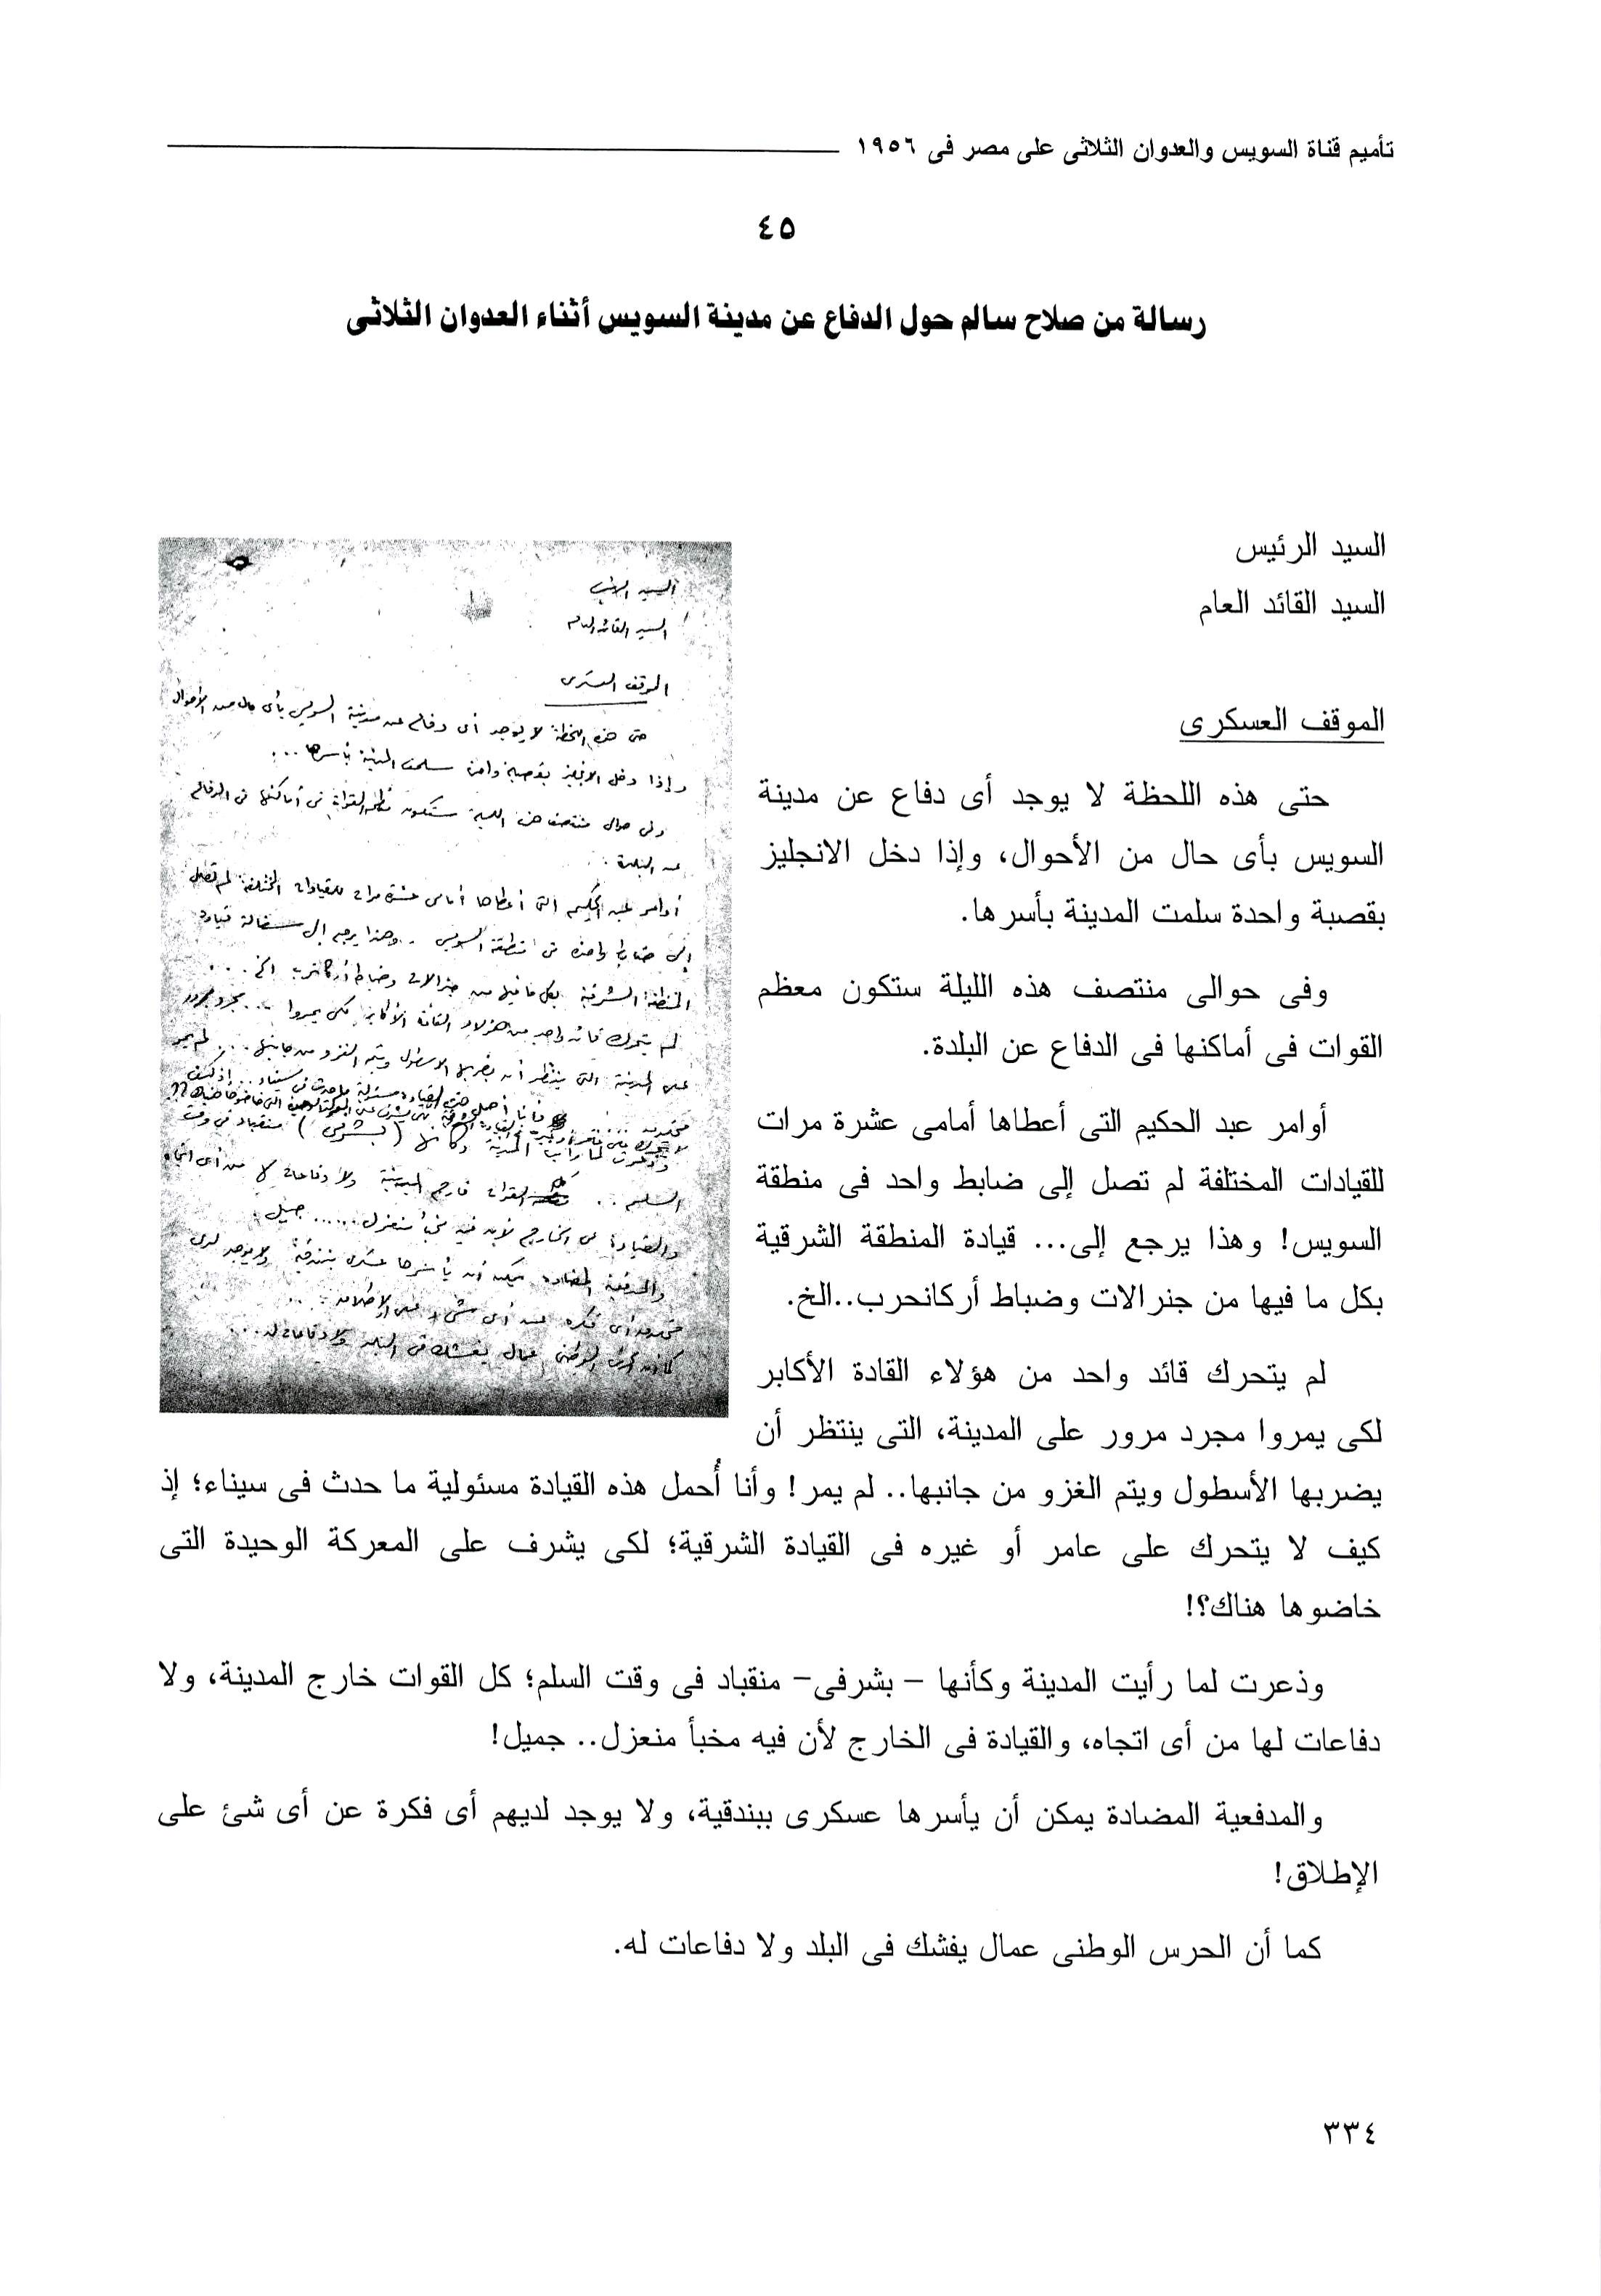 تأميم قناة السويس والعدوان الثلاثى على مصر فى ١٩٥٦
٤٥
رسالة من صلاح سالم حول الدفاع عن مدينة السويس أثناء العدوان الثلاثى
السيد الرئيس
السيد القائد العام
الموقف العسكرى
حتى هذه اللحظة لا يوجد أى دفاع عن مدينة
السويس بأى حال من الأحوال، وإذا دخل الانجليز
بقصبة واحدة سلمت المدينة بأسرها.
وفى حوالى منتصف هذه الليلة ستكون معظم
القوات فى أماكنها فى الدفاع عن البلدة.
أوامر عبد الحكيم التى أعطاها أمامى عشرة مرات
للقيادات المختلفة لم تصل إلى ضابط واحد فى منطقة
السويس! وهذا يرجع إلى... قيادة المنطقة الشرقية
بكل ما فيها من جنرالات وضباط أركانحرب..الخ.
لم يتحرك قائد واحد من هؤلاء القادة الأكابر
لكى يمروا مجرد مرور على المدينة، التى ينتظر أن
يضربها الأسطول ويتم الغزو من جانبها.. لم يمر! وأنا أُحمل هذه القيادة مسئولية ما حدث فى سيناء؛ إذ
كيف لا يتحرك على عامر أو غيره فى القيادة الشرقية؛ لكى يشرف على المعركة الوحيدة التى
خاضوها هناك؟!
وذعرت لما رأيت المدينة وكأنها – بشرفى– منقباد فى وقت السلم؛ كل القوات خارج المدينة، ولا
دفاعات لها من أى اتجاه، والقيادة فى الخارج لأن فيه مخبأ منعزل.. جميل!
والمدفعية المضادة يمكن أن يأسرها عسكرى ببندقية، ولا يوجد لديهم أى فكرة عن أى شئ على
الإطلاق!
كما أن الحرس الوطنى عمال يفشك فى البلد ولا دفاعات له.
السيد الرئيس
السيد القائد العام
الموقف العسكرى
حتى هذه اللحظة لا يوجد أى دفاع عن مدينة السويس بأى حال من الأحوال
وإذا دخل الانجليز بقصبة واحدة سلمت المدينة بأسرها ...
٣٣٤